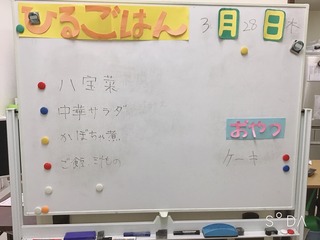 ひるごはん 3月28日 木
八宝菜
中華サラダ
かぼちゃ煮
ご飯.汁もの
おやつ
ケーキ
SODA